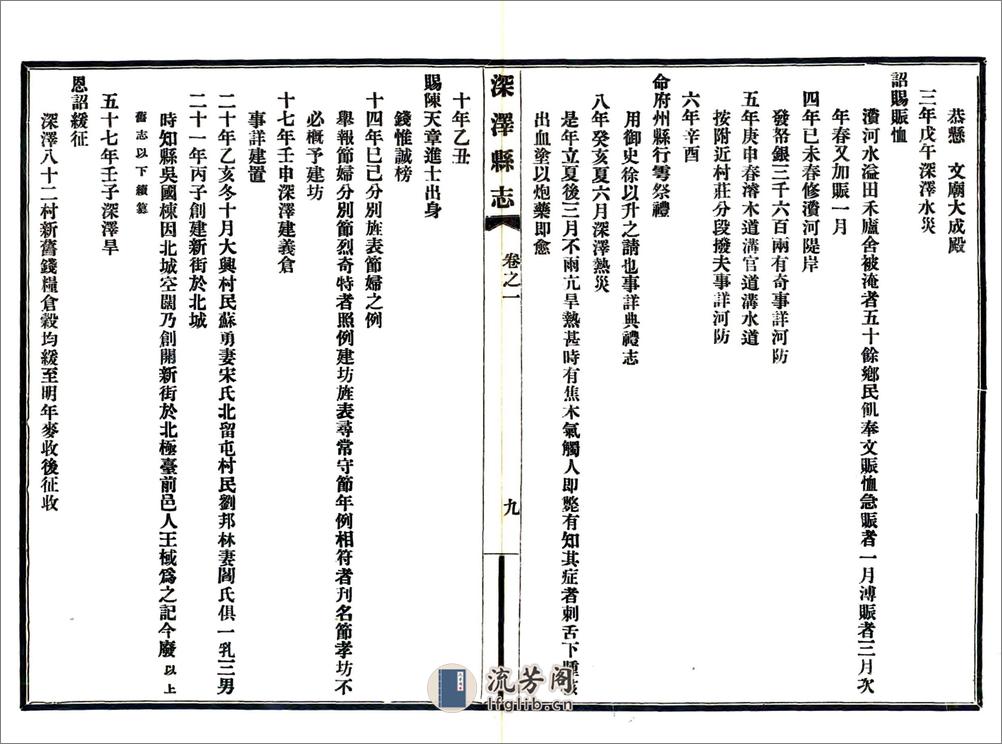 恭懸　文廟大成殿
三年戊午深澤水災
詔賜賑恤
瀆河水溢田禾廬舍被淹者五十餘鄉民飢奉文賑恤急賑者一月溥賑者三月次
年春又加賑一月
四年已未春修瀆河隄岸
發帑銀三千六百兩有奇事詳河防
五年庚申春濬木道溝官道溝水道
按附近村莊分段撥夫事詳河防
六年辛酉
命府州縣行雩祭禮
用御史徐以升之請也事詳典禮志
八年癸亥夏六月深澤熱災
是年立夏後三月不雨亢旱熱甚時有焦木氣觸人即斃有知其症者刺舌下腫
出血塗以炮藥即愈
深澤縣志
卷之一
九
十年乙丑
賜陳天章進士出身
錢惟誠榜
十四年已巳分別旌表節婦之例
舉報節婦分別節烈奇特者照例建坊旌表尋常守節年例相符者刊名節孝坊不
必概予建坊
十七年壬申深澤建義倉
事詳建置
二十年乙亥冬十月大興村民蘇勇妻宋氏北留屯村民劉邦林妻閻氏俱一乳三男
二十一年丙子創建新街於北城
時知縣吳國棟因北城空闊乃創開新街於北極臺前邑人王棫爲之記今廢 以上
舊志以下續纂
五十七年壬子深澤旱
恩詔緩征
深澤八十二村新舊錢糧倉穀均緩至明年麥收後征收
流芳阁
lfglib.cn